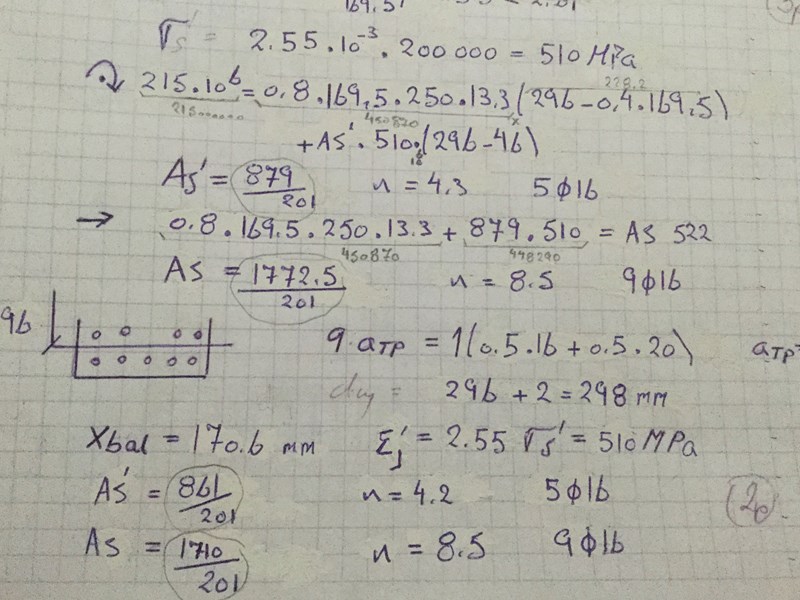 σs' = 2.55.10⁻³.200 000 = 510 MPa
215.10⁶ = 0.8.169,5.250.13.3(296-0,4.169,5)
228.2
450870
+AS'.510.(296-46)
AS' = 879/201 n = 4.3 5ϕ16
→ 0.8.169.5.250.13.3 + 879.510 = AS 522
450870 448290
AS = 1772.5/201 n = 8.5 9ϕ16
96
9.aTP = 1(0.5.16+0.5.20) aTP
296 + 2 = 298 mm
Xbal = 170.6 mm Σj' = 2.55 σs' = 510 MPa
AS' = 861/201 n = 4.2 5ϕ16
AS = 1710/201 n = 8.5 9ϕ16